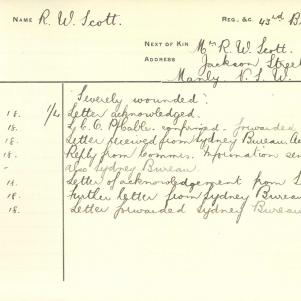 NAME R. W. Scott. REG. &C. 43rd B
NEXT OF KIN Mrs R. W. Scott.
ADDRESS Jackson Street
Manly N.S.W.
"Severely wounded".
18. 1/4 Letter acknowledged.
18. Cable. confirmed. forwarded
18. Letter received from Sydney Bureau.
18. Reply from Commrs. Information sen
also Sydney Bureau.
18. Letter of acknowledgement from S
18. Further letter from Sydney Bureau
18. Letter forwarded Sydney Bureau